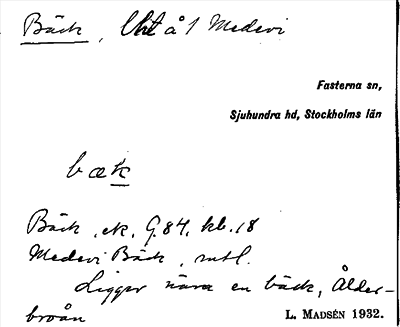 Bäck, lht å 1 Medevi
Fasterna sn,
Sjuhundra hd, Stockholms län
bæk
Bäck, ek, G.84, kb. 18
Medevi Bäck, mtl.
Ligger nära en bäck, Ålder-
broån
L. MADSÉN 1932.